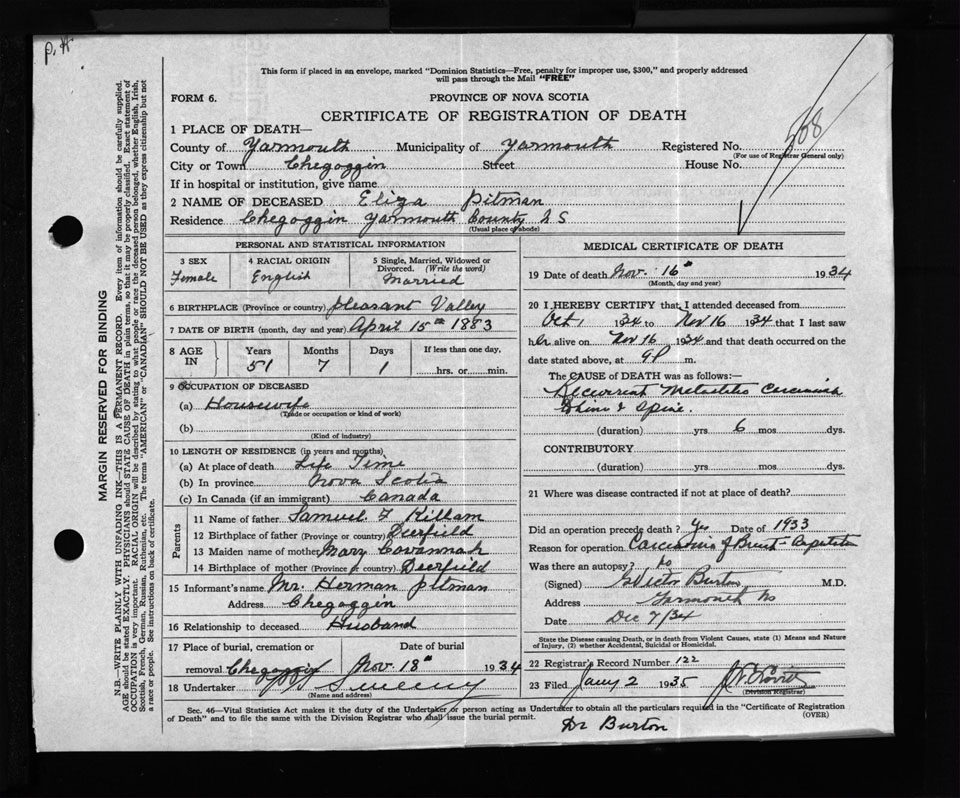 P.H
This form if placed in an envelope, marked "Dominion Statistics—Free, penalty for improper use, $300," and properly addressed
will pass through the Mail "FREE"
FORM 6.
PROVINCE OF NOVA SCOTIA
CERTIFICATE OF REGISTRATION OF DEATH
508
1 PLACE OF DEATH—
County of Yarmouth Municipality of Yarmouth Registered No.
(For use of Registrar General only)
City or Town Chegoggin Street House No.
If in hospital or institution, give name
2 NAME OF DECEASED Eliza Pitman
Residence Chegoggin Yarmouth County N S
(Usual place of abode)
PERSONAL AND STATISTICAL INFORMATION
3 SEX 4 RACIAL ORIGIN 5 Single, Married, Widowed or
Divorced. (Write the word)
Female English Married
6 BIRTHPLACE (Province or country) Pleasant Valley
7 DATE OF BIRTH (month, day and year) April 15th 1883
8 AGE IN Years Months Days If less than one day,
51 7 1 hrs. or min.
9 OCCUPATION OF DECEASED
(a) Housewife
(Trade or occupation or kind of work)
(b)
(Kind of industry)
10 LENGTH OF RESIDENCE (in years and months)
(a) At place of death Life Time
(b) In province Nova Scotia
(c) In Canada (if an immigrant) Canada
Parents
11 Name of father Samuel F Killam
12 Birthplace of father (Province or country) Deerfield
13 Maiden name of mother Mary Cavannah
14 Birthplace of mother (Province or country) Deerfield
15 Informant's name Mr. Herman Pitman
Address Chegoggin
16 Relationship to deceased Husband
17 Place of burial, cremation or Date of burial
removal Chegoggin Nov. 18th 1934
18 Undertaker Sweeny
(Name and address)
MEDICAL CERTIFICATE OF DEATH
19 Date of death Nov. 16th 1934
(Month, day and year)
20 I HEREBY CERTIFY that I attended deceased from
Oct 1 1934 to Nov 16 1934 that I last saw
her alive on Nov 16 1934 and that death occurred on the
date stated above, at 9 P m.
The CAUSE of DEATH was as follows:—
Recurrent Carcinoma
& Spine.
(duration) yrs 6 mos dys.
CONTRIBUTORY
(duration) yrs mos dys.
21 Where was disease contracted if not at place of death?
Did an operation precede death? Yes Date of 1933
Reason for operation Carcinoma of Breast
Was there an autopsy? No
(Signed) Victor Burton M.D.
Address Yarmouth NS
Date Dec 7/34
State the Disease causing Death, or in death from Violent Causes, state (1) Means and Nature
of Injury, (2) whether Accidental, Suicidal or Homicidal.
22 Registrar's Record Number 122
23 Filed Jany 2 1935
(Division Registrar)
Sec. 46—Vital Statistics Act makes it the duty of the Undertaker or person acting as Undertaker to obtain all the particulars required in the "Certificate of Registration
of Death" and to file the same with the Division Registrar who shall issue the burial permit. (OVER)
Dr Burton
MARGIN RESERVED FOR BINDING
N.B.—WRITE PLAINLY WITH UNFADING INK—THIS IS A PERMANENT RECORD. Every item of information should be carefully supplied.
AGE should be stated EXACTLY. PHYSICIANS should STATE CAUSE OF DEATH in plain terms, so that it may be properly classified. Exact statement of
OCCUPATION is very important. RACIAL ORIGIN will be described by stating to what people or race the deceased person belonged, whether English, Irish,
Scottish, French, German, Russian, Ruthenian, etc. The terms "AMERICAN" or "CANADIAN" SHOULD NOT BE USED as they express citizenship but not
a race or people. See instructions on back of certificate.